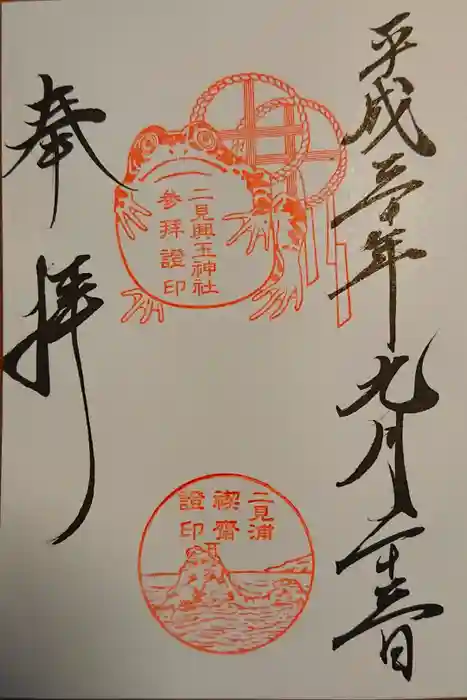 平成三十年九月二十三日
二見興玉神社
參拜證印
二見浦
禊齋
證印
奉拝